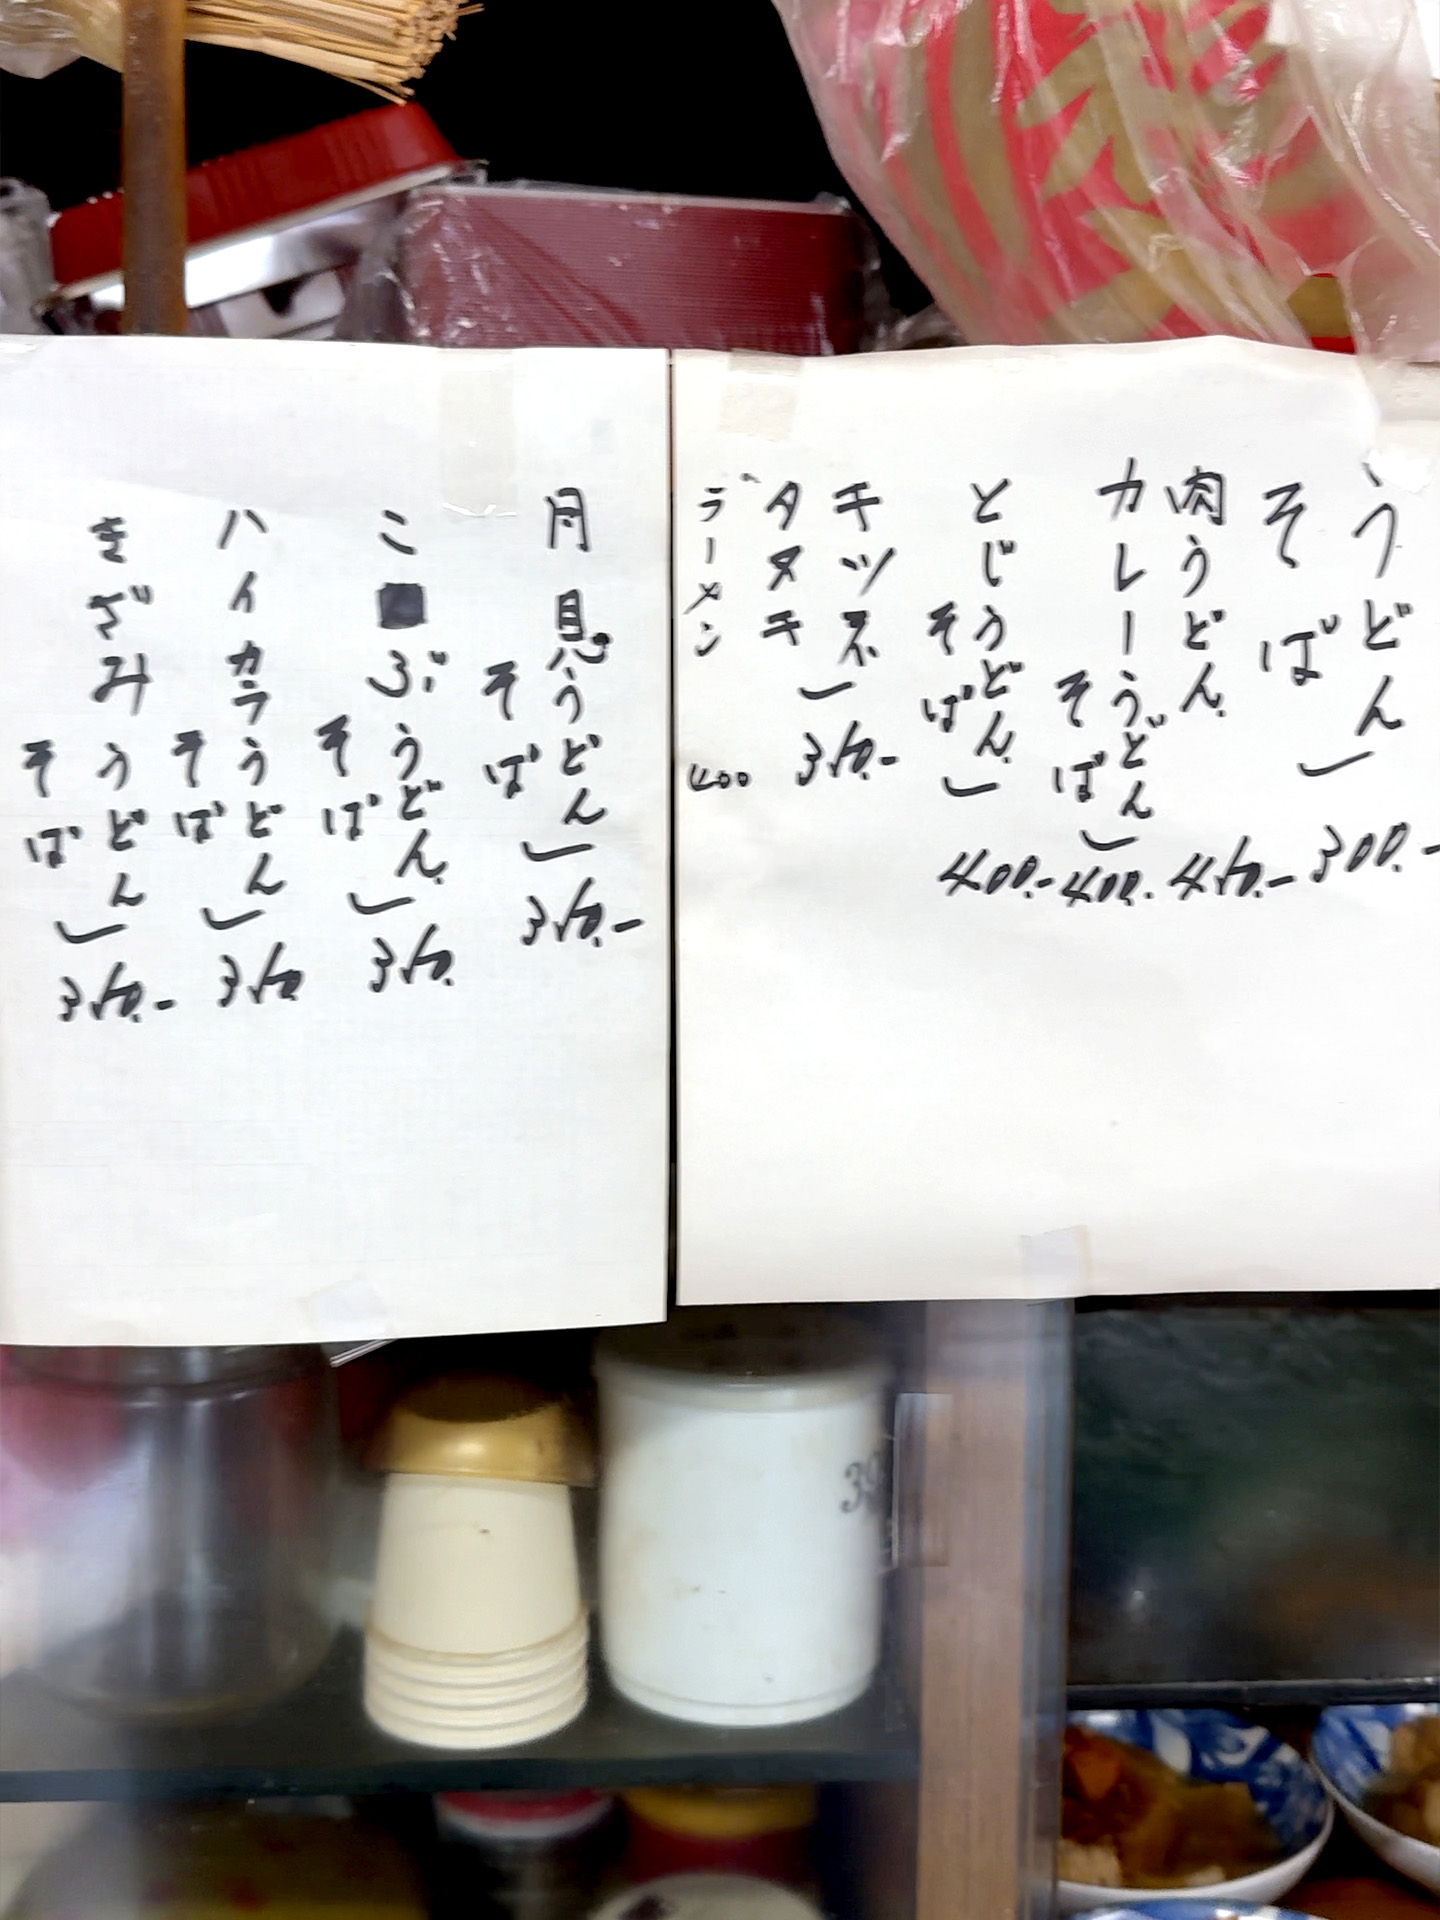 うどん
そば 300.-
肉うどん 450.-
カレーうどん
そば 400.
とじうどん
そば 400.-
キツネ
タヌキ 350.-
ラーメン 400
月見うどん
そば 350.-
こぶうどん
そば 350.
ハイカラうどん
そば 350
きざみうどん
そば 350.-